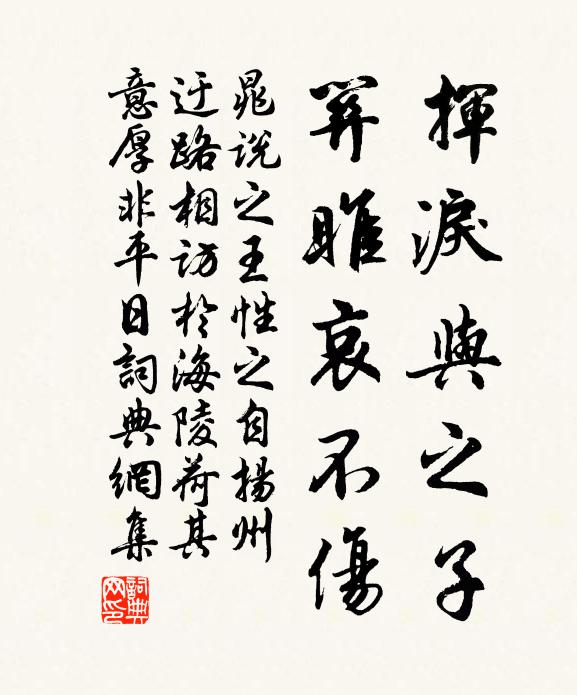 揮淚與之子
關雎哀不傷
晁說之王性之自揚州
迂路相訪於海陵荷其
意厚非平日詞典網集
詞典
网印